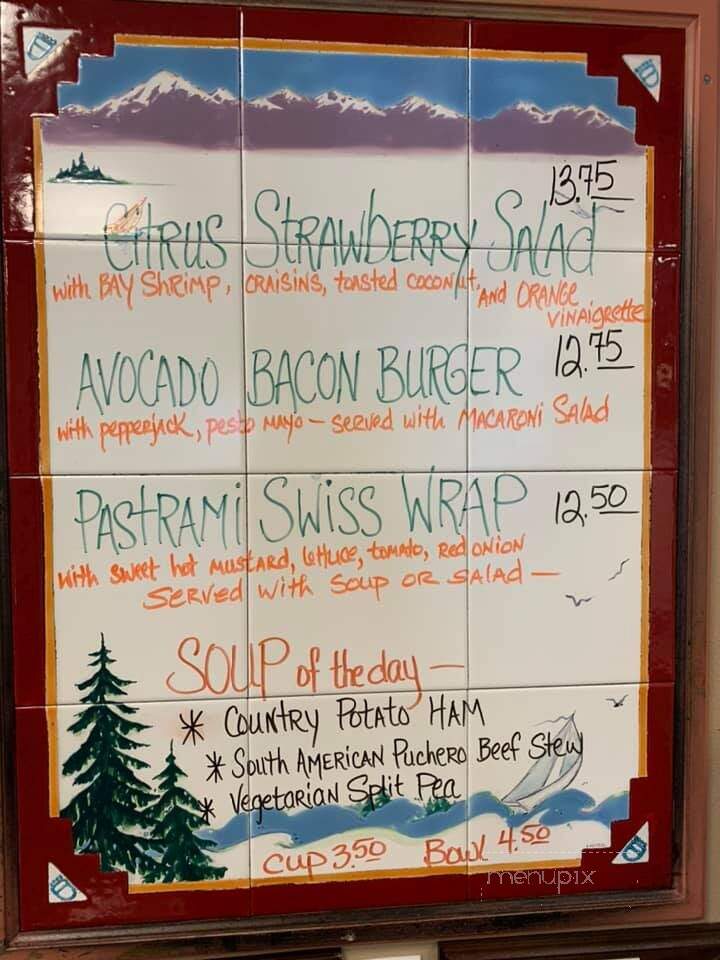 13.75
Citrus Strawberry Salad
with BAY Shrimp, CRAISINS, toasted coconut, AND ORANGE
VINAIGRETTE
AVOCADO BACON BURGER 12.75
with pepperjack, pesto MAYO – served with MACARONI Salad
PASTRAMI SWISS WRAP 12.50
with sweet hot MUSTARD, lettuce, tomato, RED ONION
SERVED WITH SOUP OR SALAD –
SOUP of the day –
* COUNTRY POTATO HAM
* South AMERICAN Puchero Beef Stew
* VEGETARIAN Split Pea
Cup 3.50 Bowl 4.50
menupix